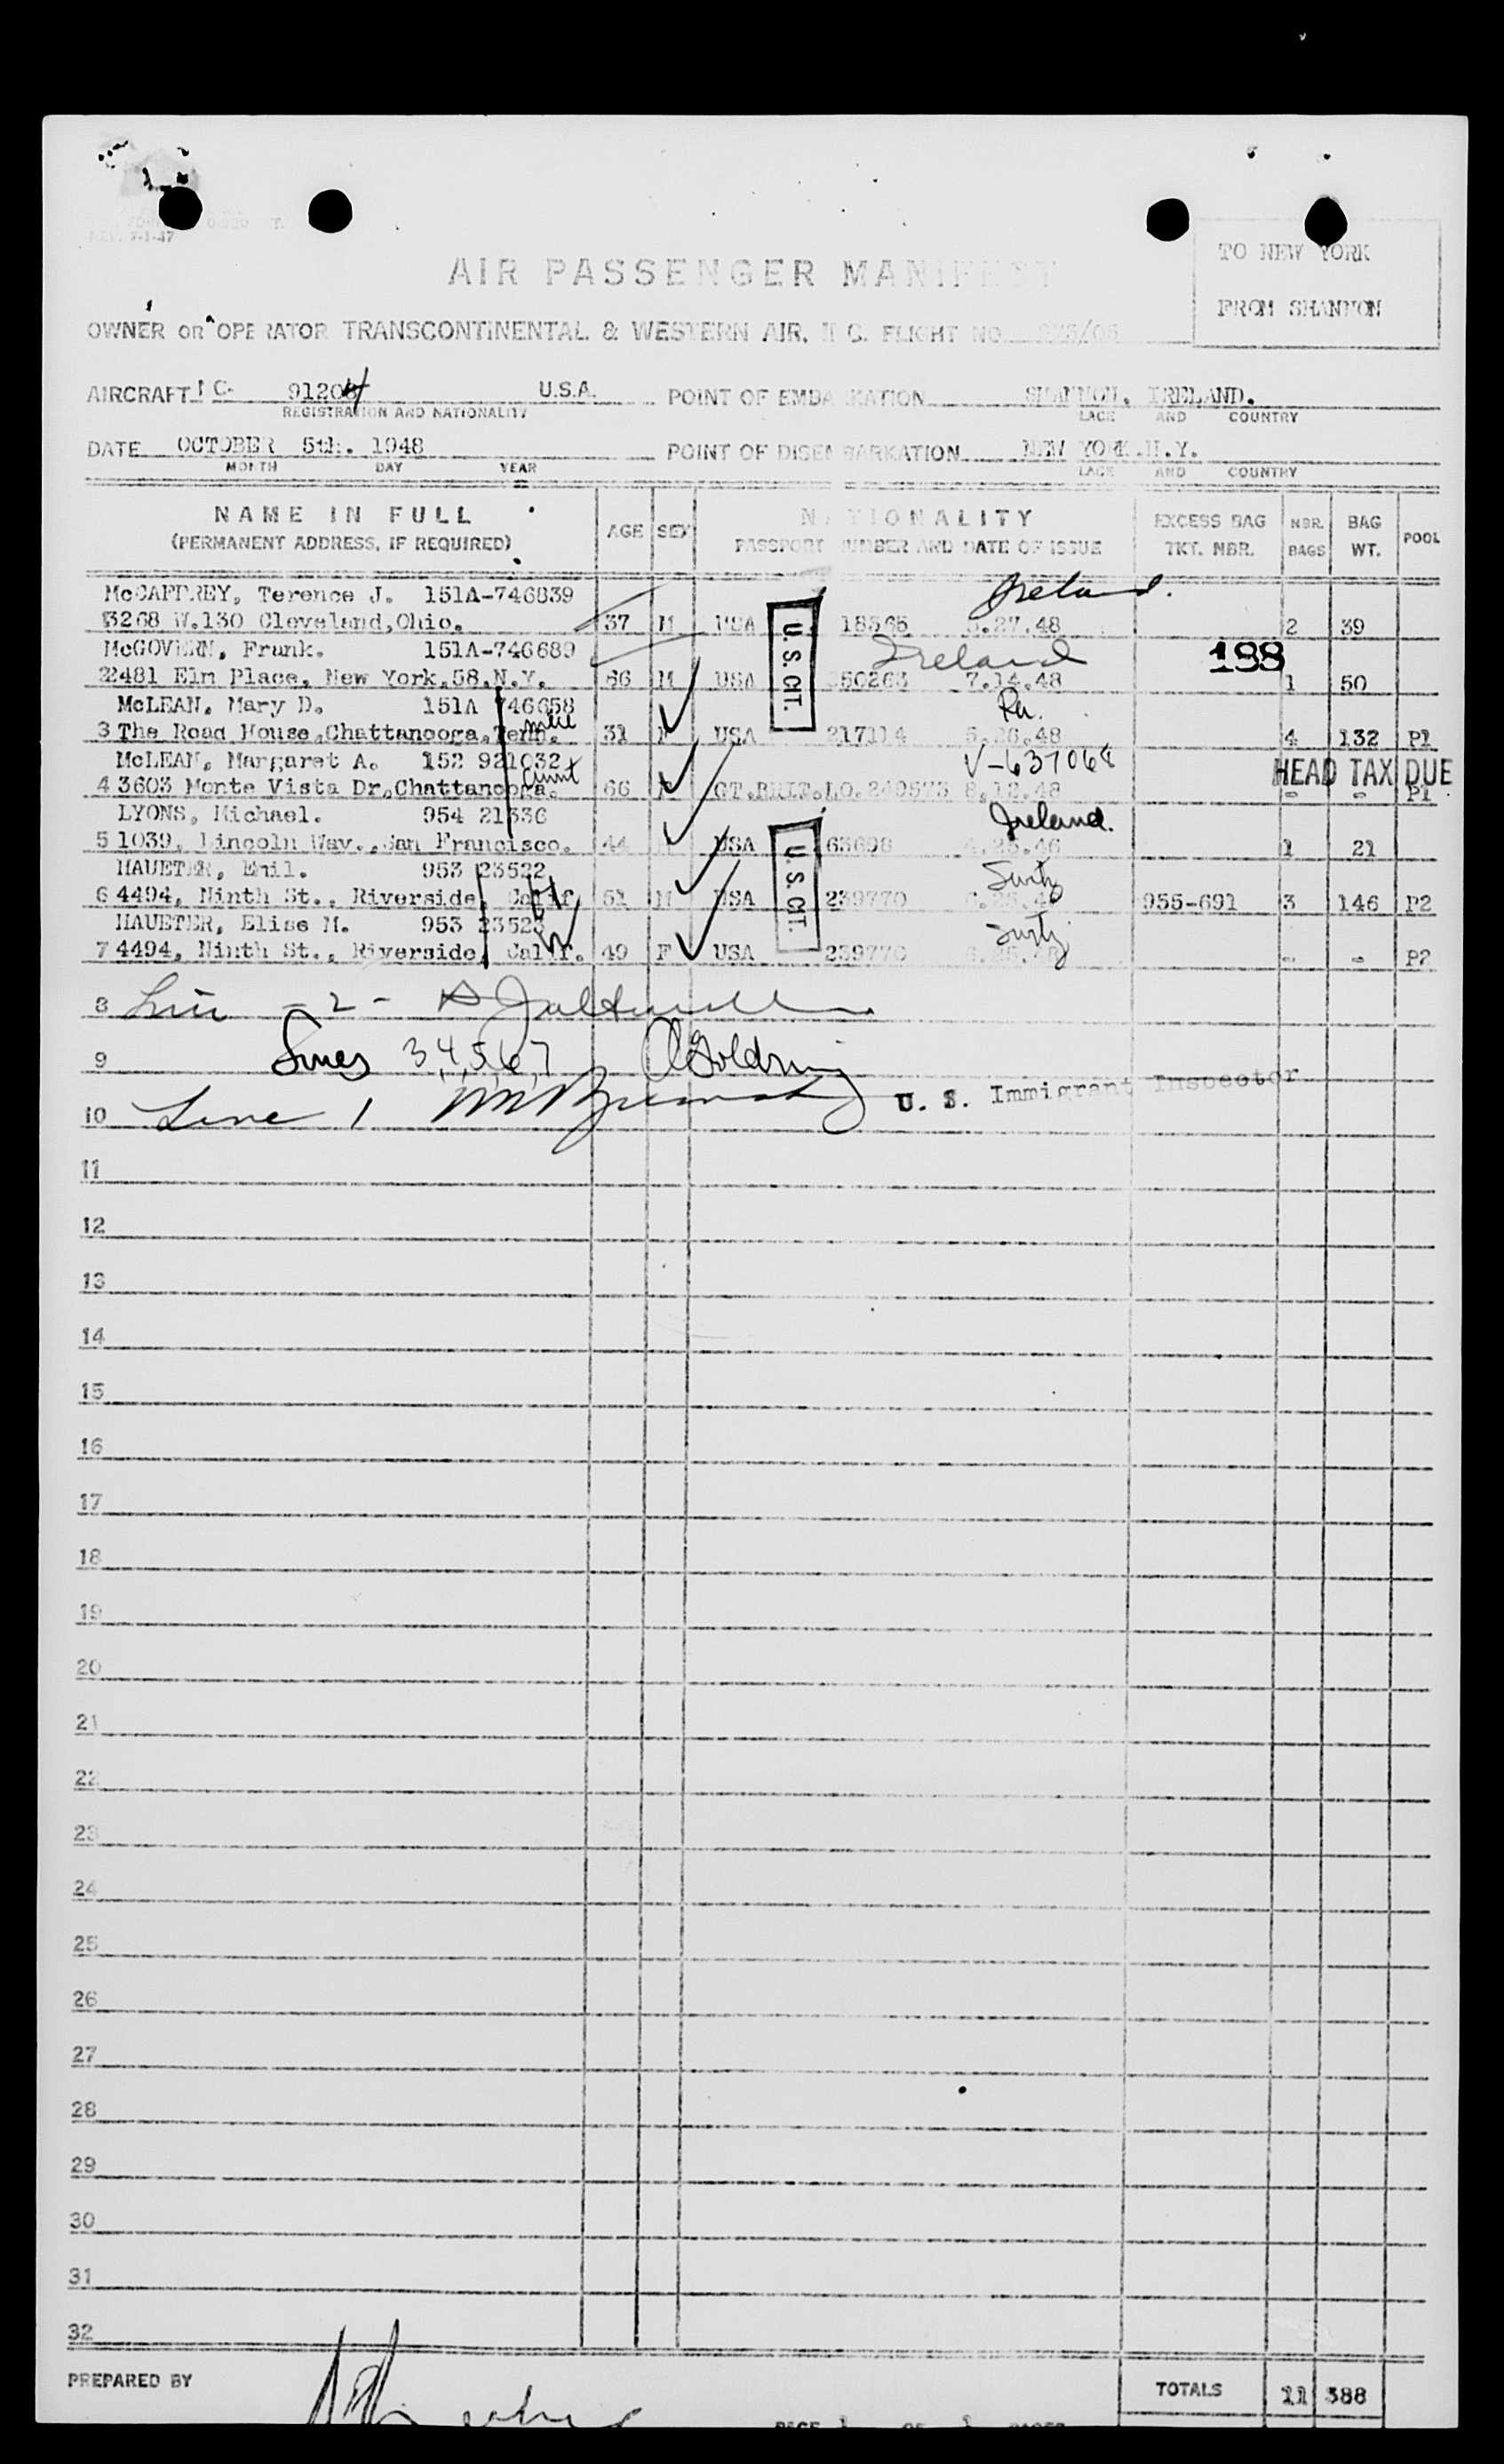 REV. 7-1-47
TO NEW YORK
FROM SHANNON
AIR PASSENGER MANIFEST
OWNER OR OPERATOR TRANSCONTINENTAL & WESTERN AIR, INC. FLIGHT NO.
AIRCRAFT 91204 U.S.A. POINT OF EMBARKATION SHANNON, IRELAND.
REGISTRATION AND NATIONALITY PLACE AND COUNTRY
DATE OCTOBER 5th. 1948 POINT OF DISEMBARKATION NEW YORK.N.Y.
MONTH DAY YEAR PLACE AND COUNTRY
NAME IN FULL AGE SEX NATIONALITY EXCESS BAG NBR. BAG POOL
(PERMANENT ADDRESS, IF REQUIRED) PASSPORT NUMBER AND DATE OF ISSUE TKT. NBR. BAGS WT.
McCAFFREY, Terence J. 151A-746839 Ireland.
3268 W.130 Cleveland,Ohio. 37 M USA 18565 5.27.48 2 39
McGOVERN, Frank. 151A-746689 Ireland 188
2 2481 Elm Place, New York,58,N.Y. 66 M USA 7.14.48 1 50
U.S. CIT.
McLEAN, Mary D. 151A 746658 Pa.
3 The Road House,Chattanooga,Tenn. 31 USA 217114 5.26.48 4 132 P1
McLEAN, Margaret A. 152 921032 V-637068
HEAD TAX DUE
4 3603 Monte Vista Dr.Chattanooga. Aunt 66 GT.BRIT.LO.240573 8.12.48 - - P1
LYONS, Michael. 954 21336 Ireland.
5 1039, Lincoln Way.,San Francisco. 44 USA 63698 1 21
U.S. CIT.
HAUETER, Emil. 953 23522 Switz
6 4494, Ninth St., Riverside, Calif. 51 M USA 239770 955-691 3 146 P2
HAUETER, Elise M. 953 23523 Switz
7 4494, Ninth St., Riverside, Calif. 49 F USA 239770 - - P2
8 Line -2-
9 Lines 3,4,5,6,7
U. S. Immigrant Inspector
10 Line 1
11
12
13
14
15
16
17
18
19
20
21
22
23
24
25
26
27
28
29
30
31
32
PREPARED BY TOTALS 11 388
PAGE 1 OF 1 PAGES